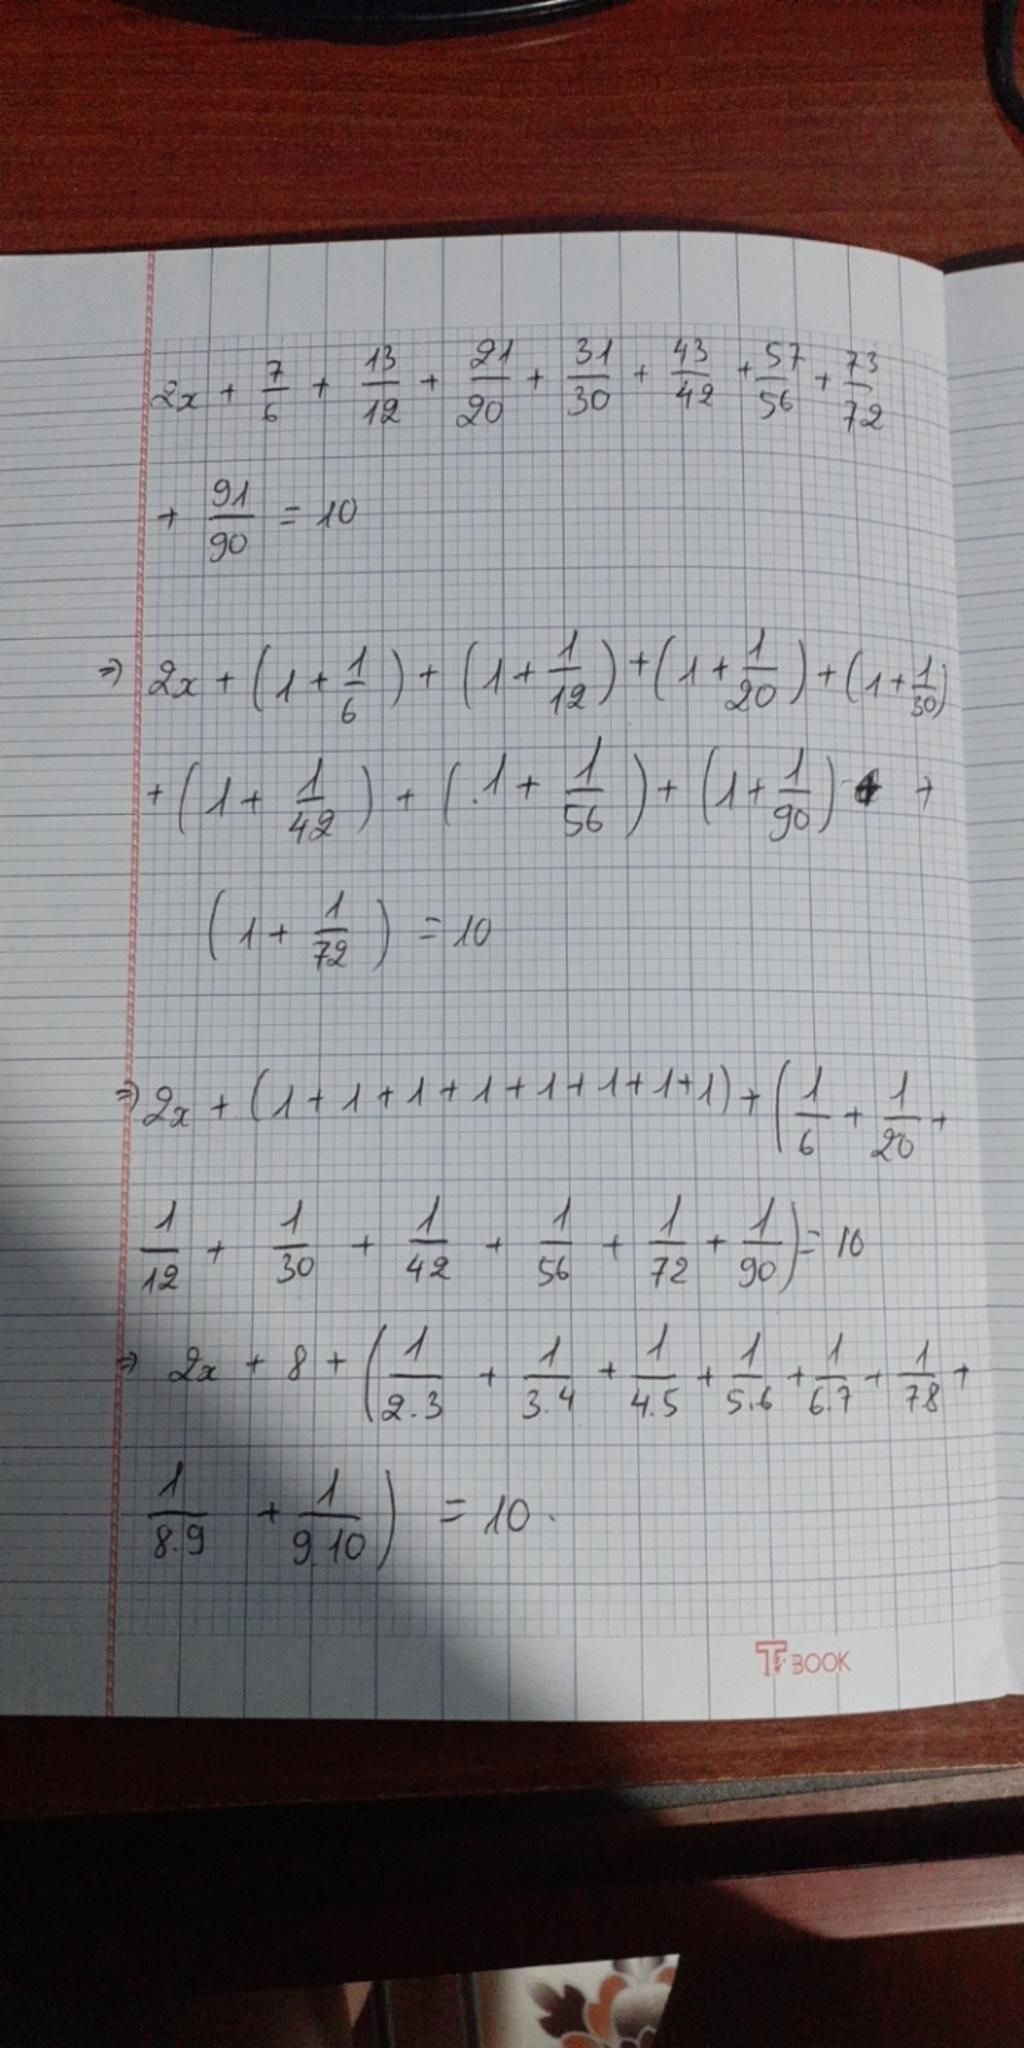 2x + 7/6 + 13/12 + 21/20 + 31/30 + 43/42 + 57/56 + 73/72
+ 91/90 = 10
⇒ 2x + (1 + 1/6) + (1 + 1/12) + (1 + 1/20) + (1 + 1/30)
+ (1 + 1/42) + (1 + 1/56) + (1 + 1/90) +
(1 + 1/72) = 10
⇒ 2x + (1 + 1 + 1 + 1 + 1 + 1 + 1 + 1) + (1/6 + 1/20 +
1/12 + 1/30 + 1/42 + 1/56 + 1/72 + 1/90) = 10
⇒ 2x + 8 + (1/2.3 + 1/3.4 + 1/4.5 + 1/5.6 + 1/6.7 + 1/7.8 +
1/8.9 + 1/9.10) = 10.
BOOK